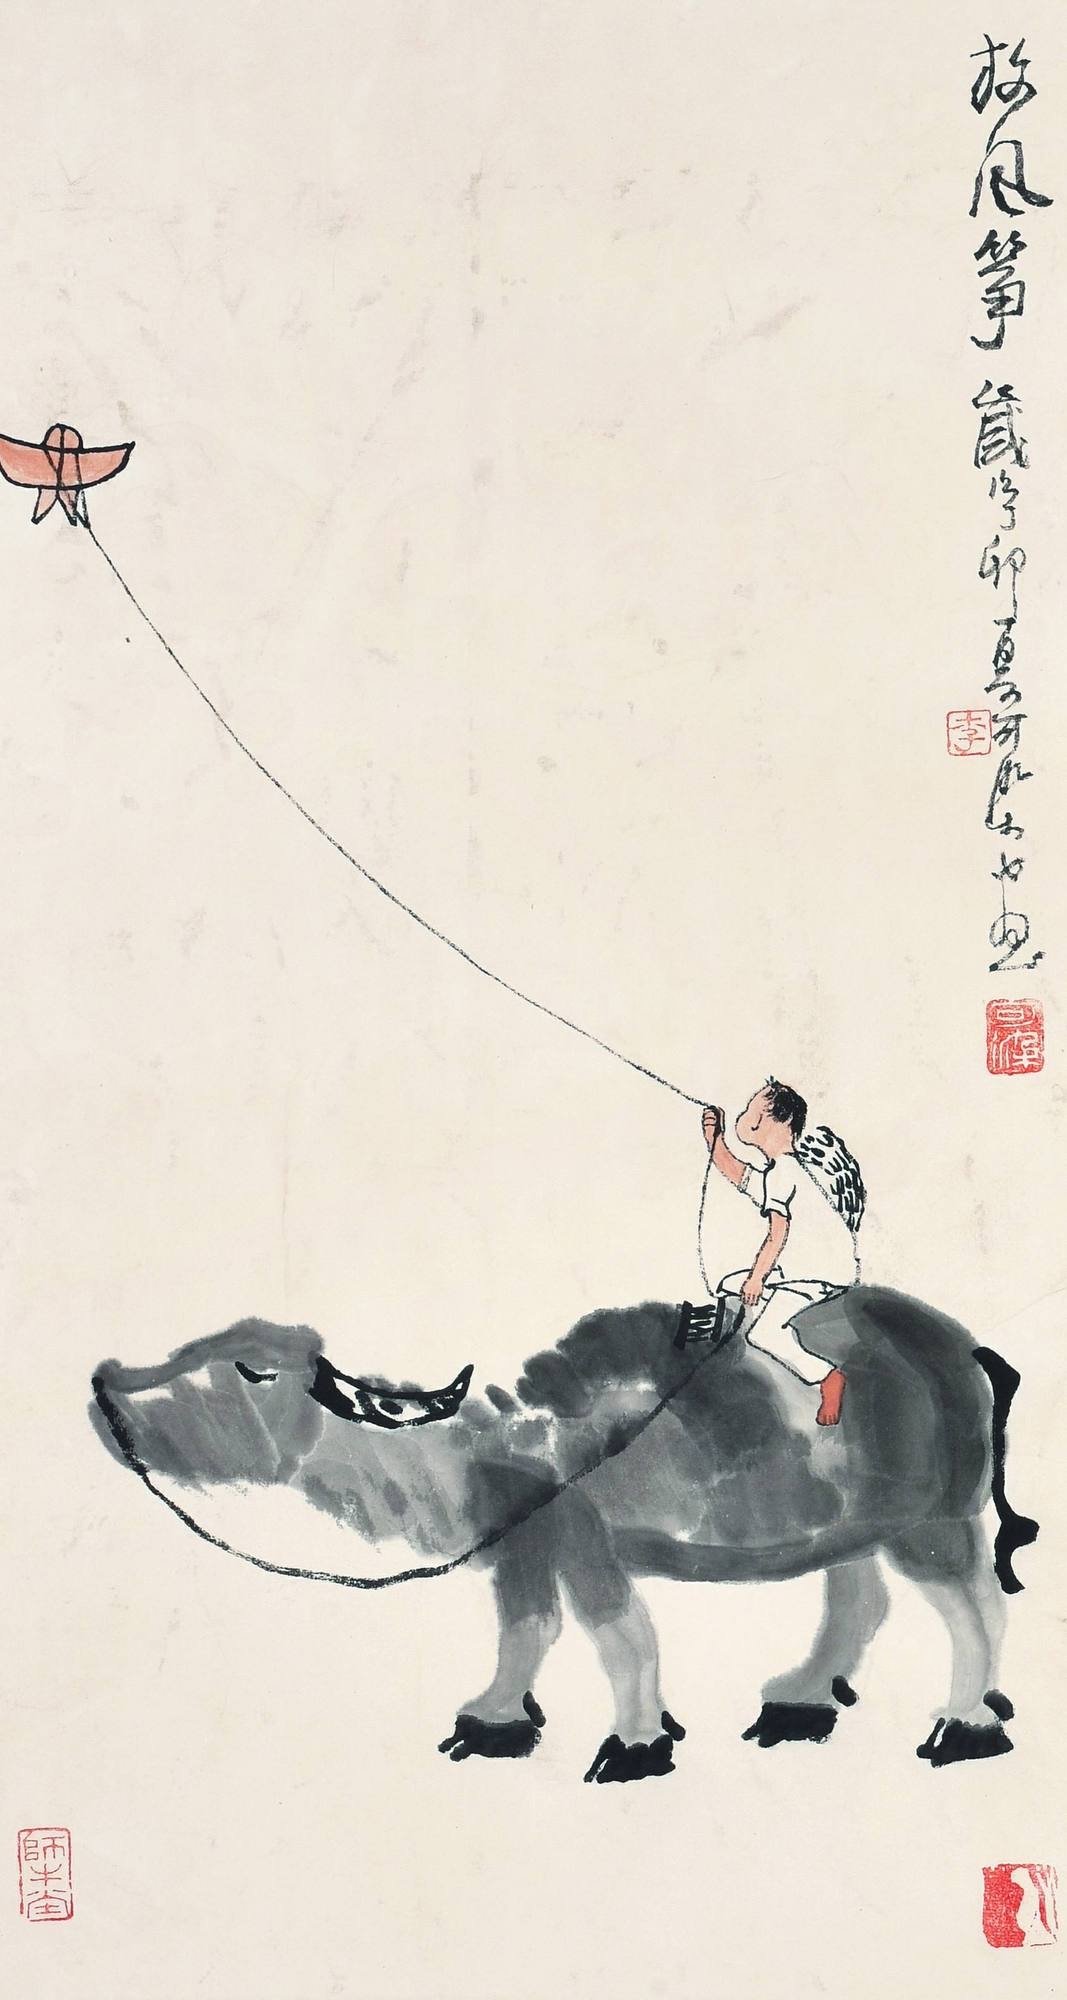 放风筝 歲次丁卯夏可染 画
李
可染
師牛堂